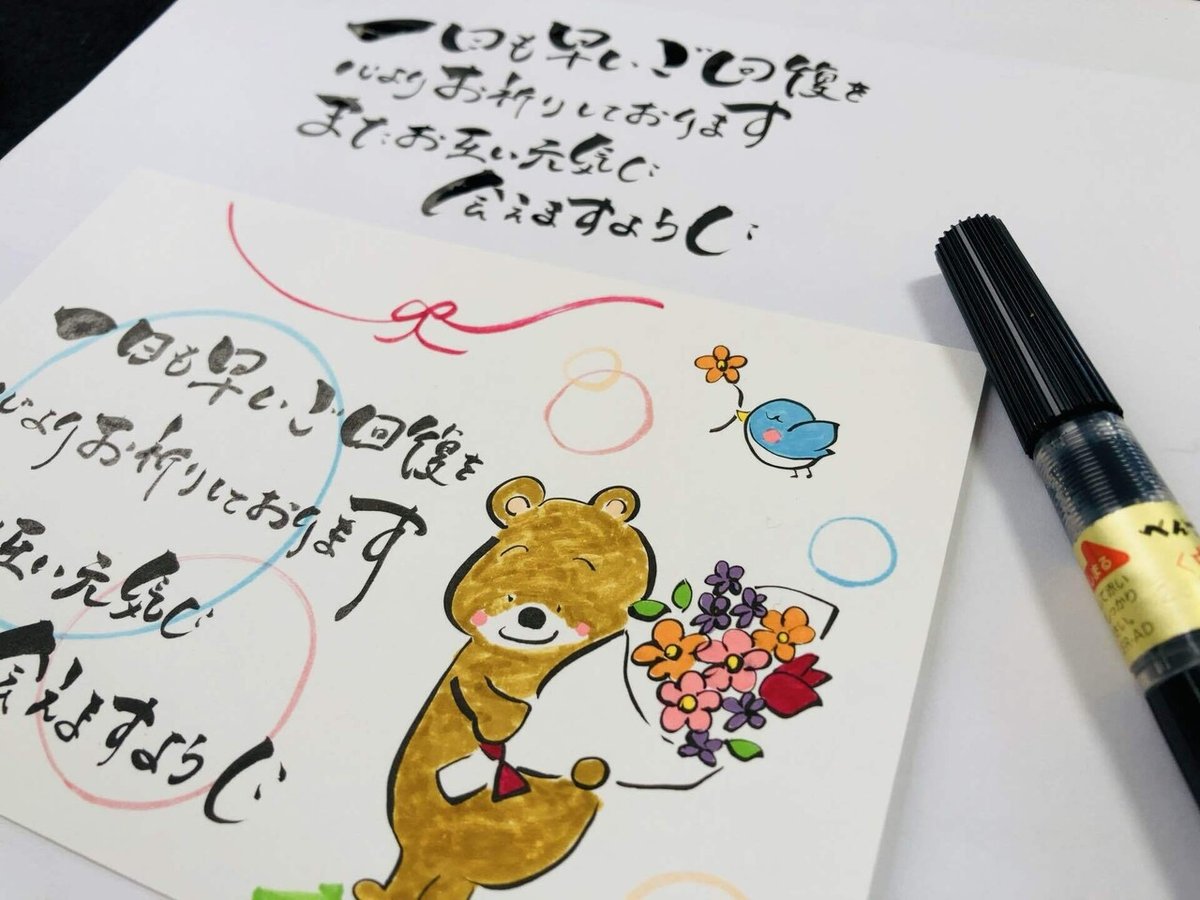 一日も早いご回復を
心よりお祈りしております
またお互い元気に
会えますように
一日も早いご回復を
心よりお祈りしております
互い元気に
会えますように
ぺん